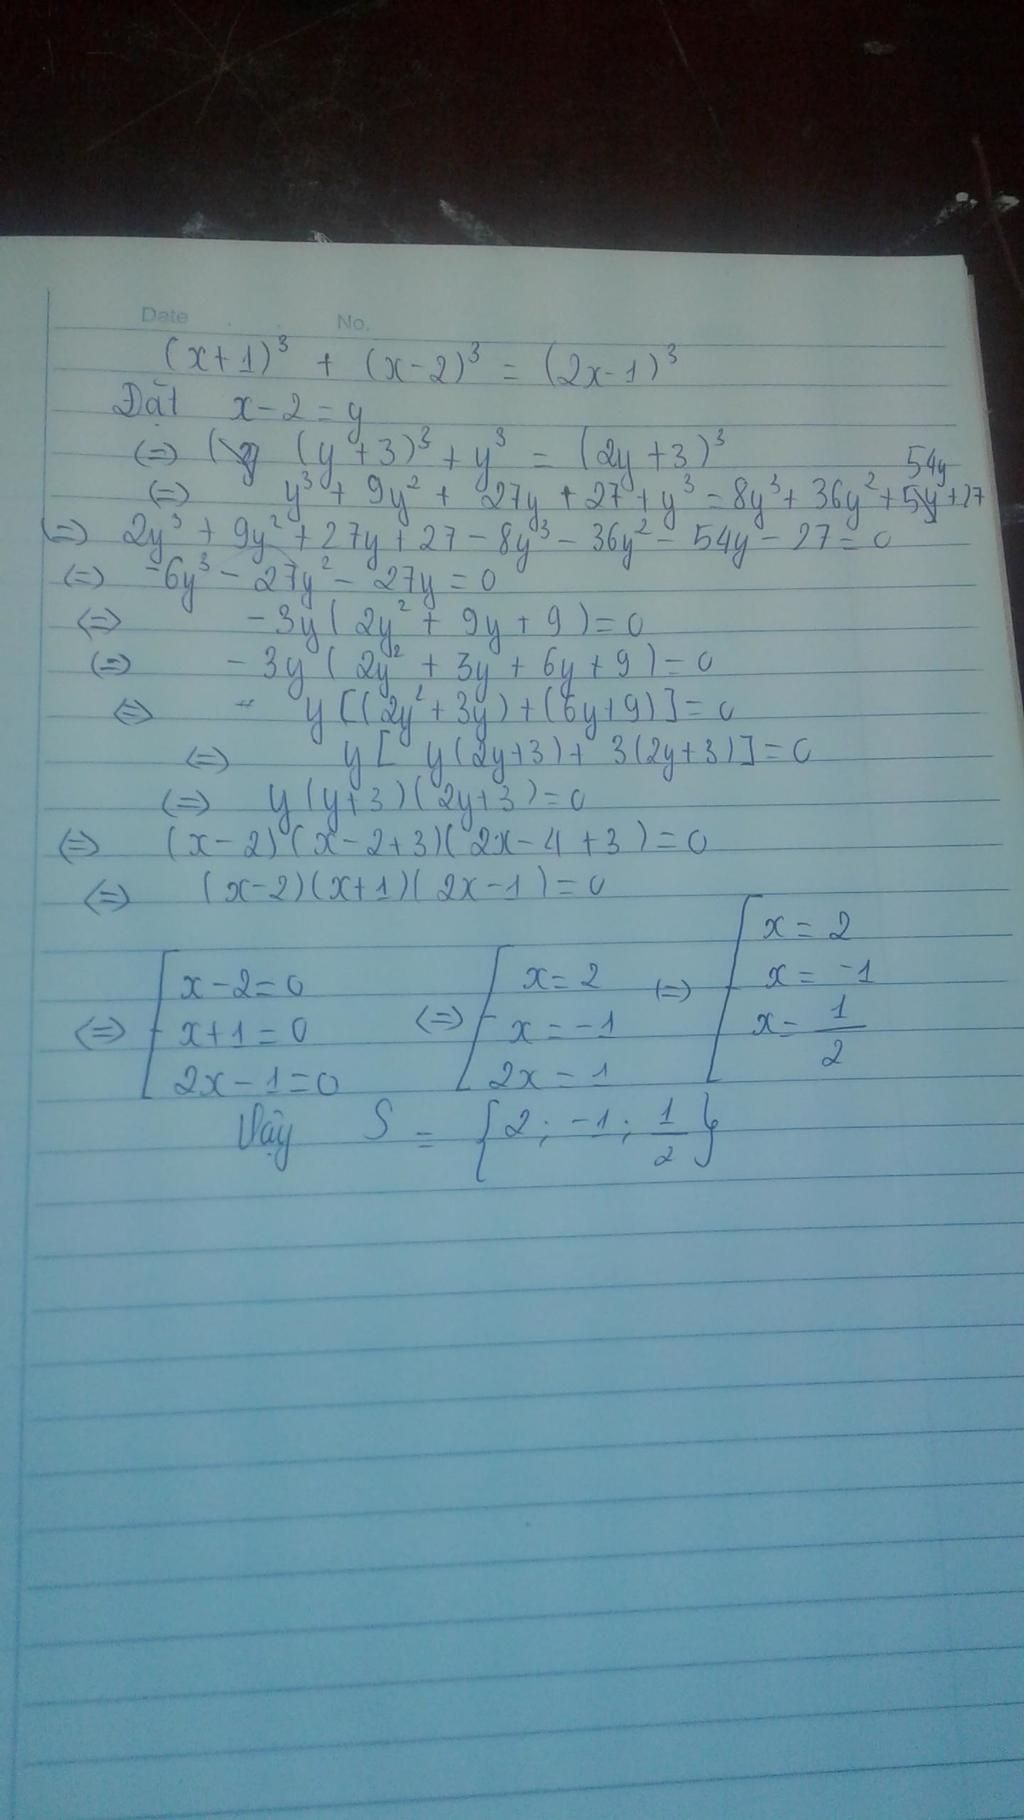 Date No.
(x+1)³ + (x-2)³ = (2x-1)³
Đặt x-2 = y
(=) (y+3)³ + y³ = (2y+3)³
54y
(=) y³ + 9y² + 27y + 27 + y³ = 8y³ + 36y² + 54y + 27
(=) 2y³ + 9y² + 27y + 27 - 8y³ - 36y² - 54y - 27 = 0
(=) -6y³ - 27y² - 27y = 0
(=) -3y(2y² + 9y + 9) = 0
(=) -3y(2y² + 3y + 6y + 9) = 0
(=) y[(2y² + 3y) + (6y+9)] = 0
(=) y[y(2y+3) + 3(2y+3)] = 0
(=) y(y+3)(2y+3) = 0
(=) (x-2)(x-2+3)(2x-4+3) = 0
(=) (x-2)(x+1)(2x-1) = 0
(=) [ x-2=0 (=) [ x=2 (=) [ x=2
x+1=0 x=-1 x=-1
2x-1=0 2x=1 x=1/2
Vậy S = {2; -1; 1/2}